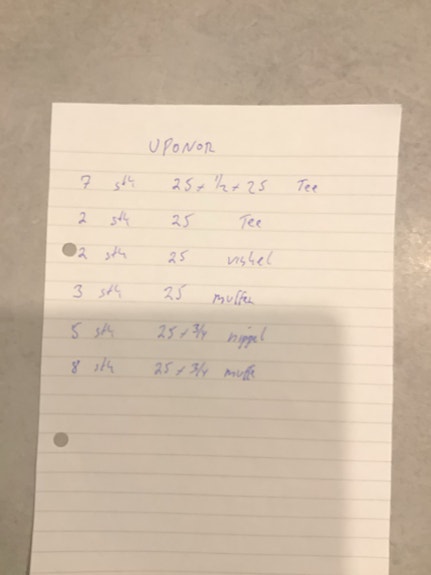 UPONOR
7 stk 25 + 1/2 + 25 Tee
2 stk 25 Tee
2 stk 25 vinkel
3 stk 25 muffer
5 stk 25 + 3/4 nippel
8 stk 25 + 3/4 muffe